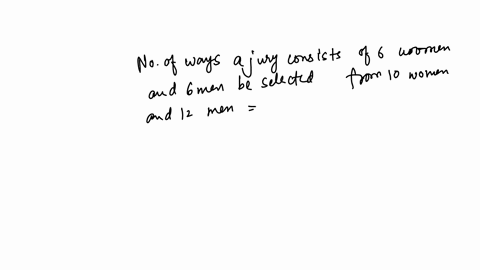 No. of ways a jury consists of 6 women
and 6 men be selected from 10 women
and 12 men =